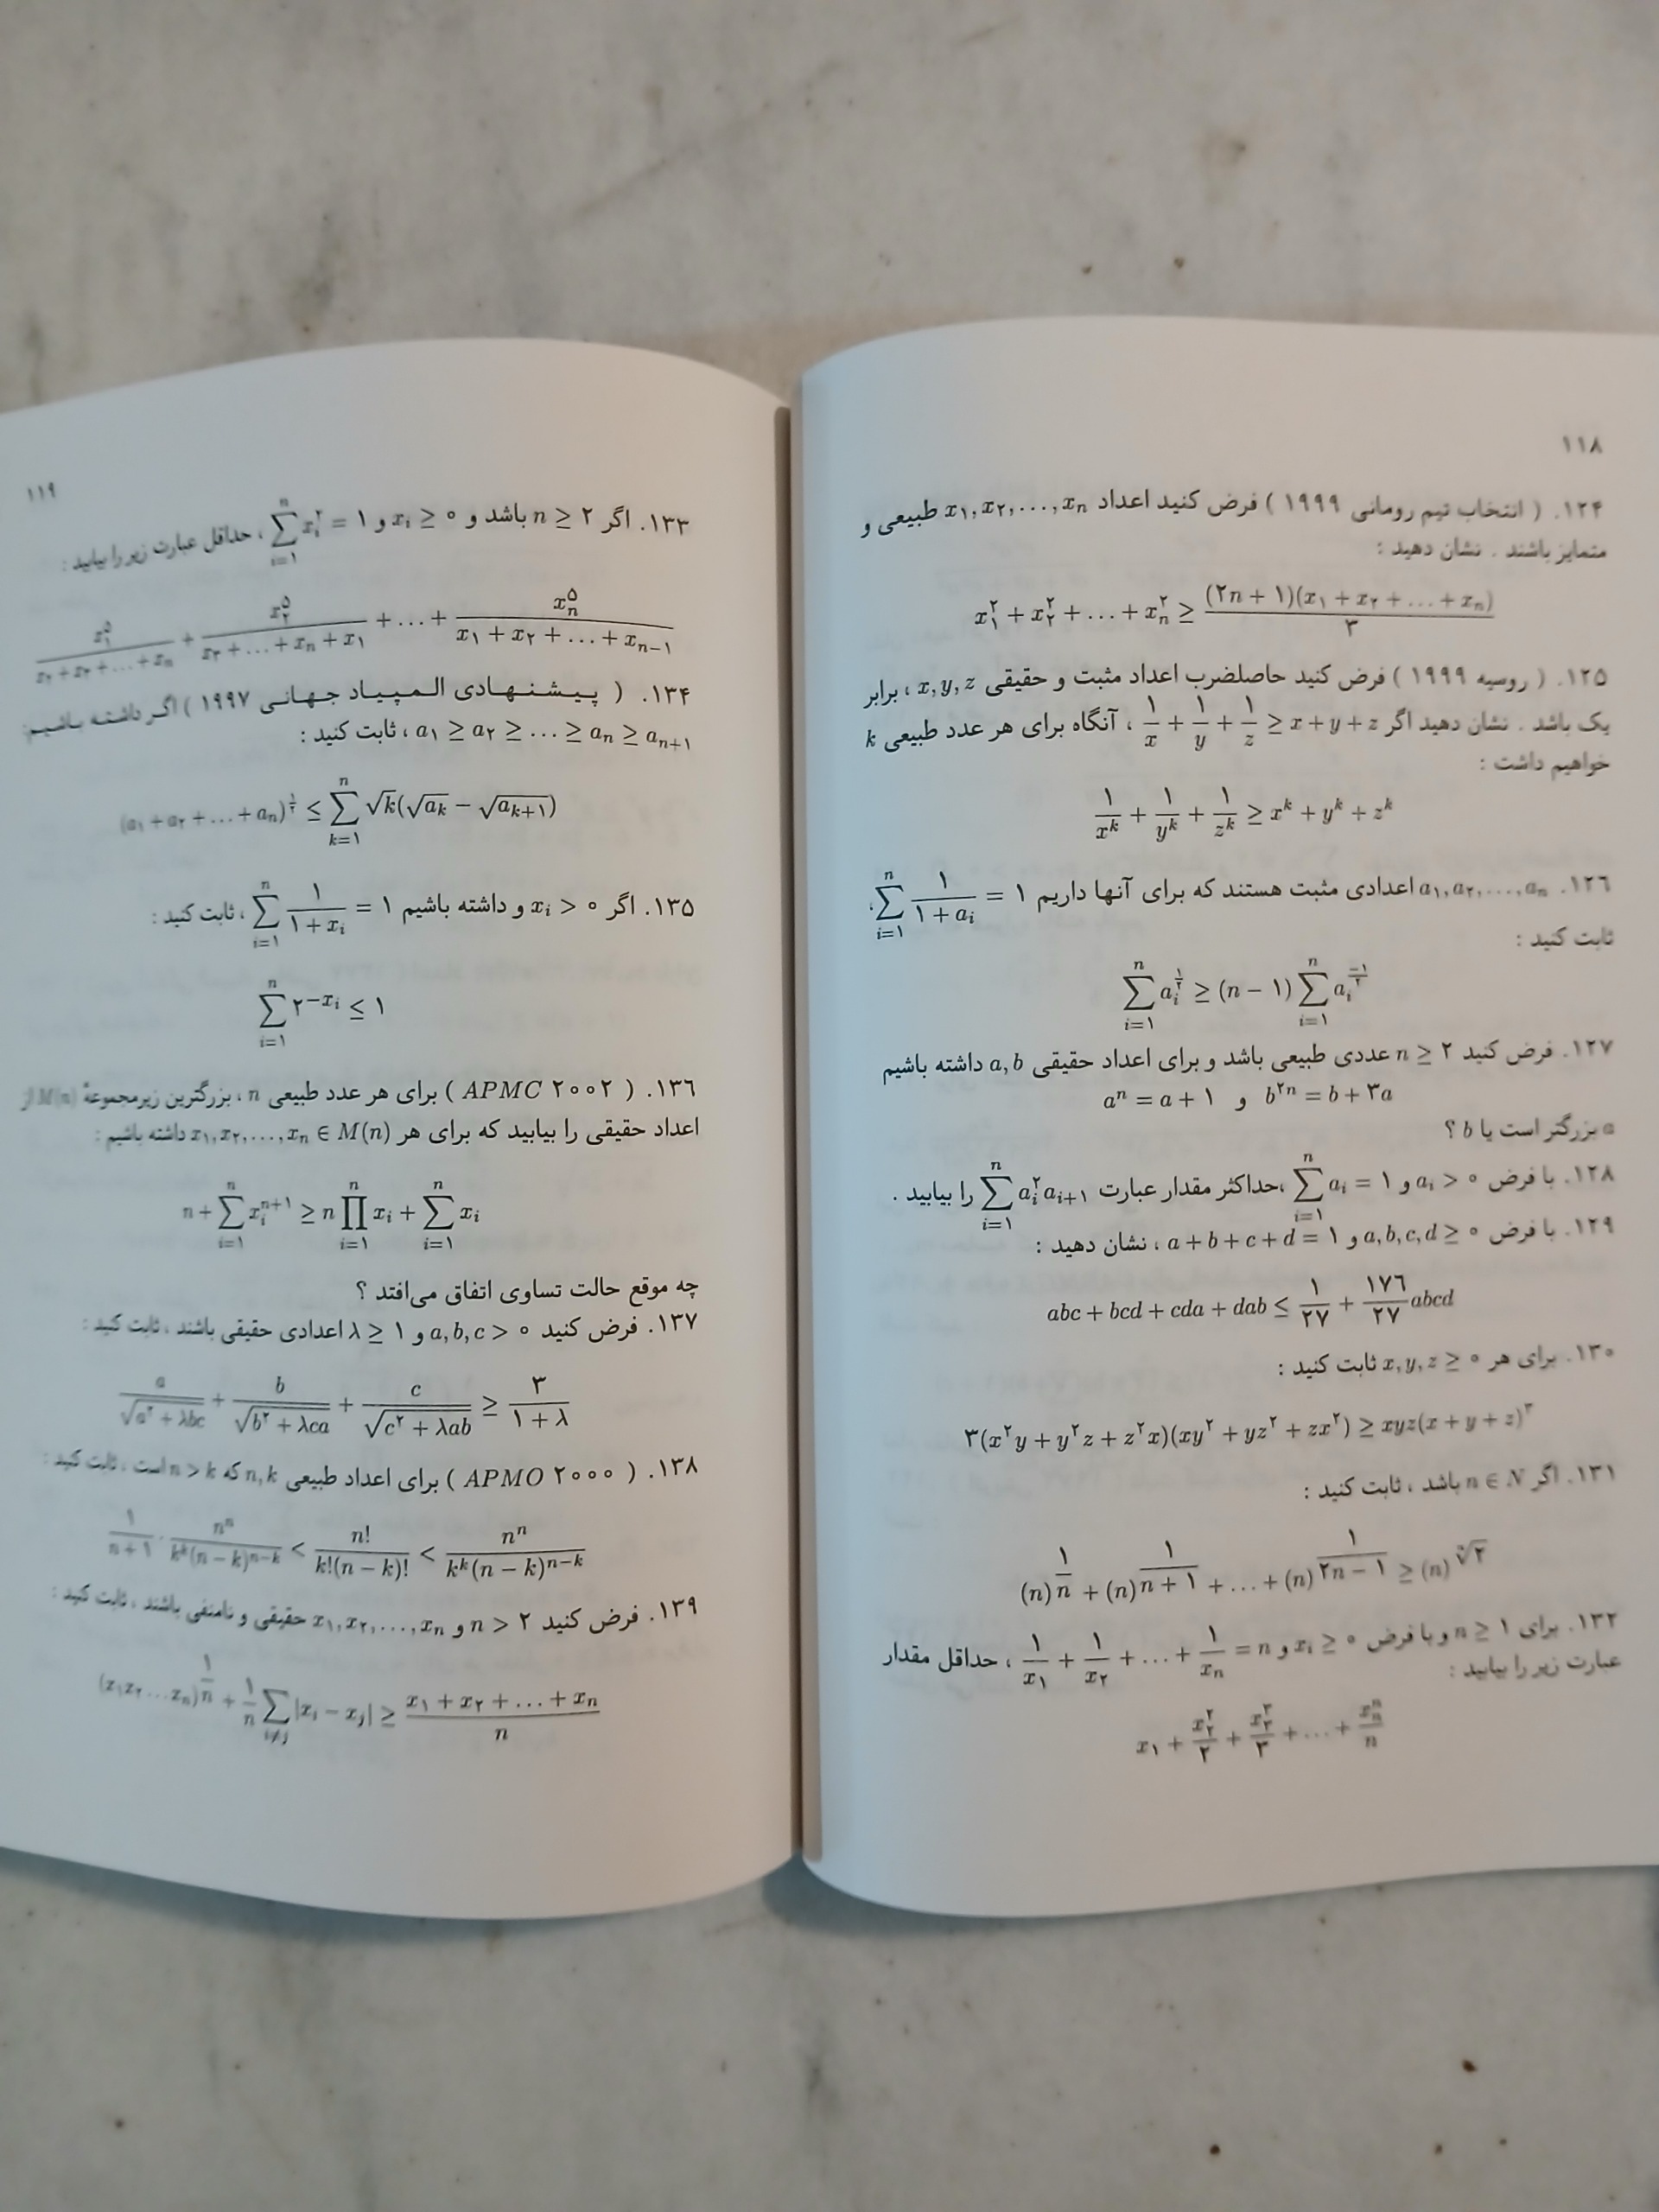 ۱۱۸
۱۲۴. ( انتخاب تیم رومانی ۱۹۹۹ ) فرض کنید اعداد x₁, x₂, ..., xₙ طبیعی و
متمایز باشند . نشان دهید :
x₁^۲ + x₂^۲ + ... + xₙ^۲ ≥ (۲n + ۱)(x₁ + x₂ + ... + xₙ) / ۳
۱۲۵. ( روسیه ۱۹۹۹ ) فرض کنید حاصلضرب اعداد مثبت و حقیقی x, y, z ، برابر
یک باشد . نشان دهید اگر ۱/x + ۱/y + ۱/z ≥ x + y + z ، آنگاه برای هر عدد طبیعی k
خواهیم داشت :
۱/x^k + ۱/y^k + ۱/z^k ≥ x^k + y^k + z^k
۱۲۶. a₁, a₂, ..., aₙ اعدادی مثبت هستند که برای آنها داریم ∑_{i=۱}^{n} ۱/(۱ + a_i) = ۱ ،
ثابت کنید :
∑_{i=۱}^{n} a_i^{۱/۲} ≥ (n − ۱) ∑_{i=۱}^{n} a_i^{−۱/۲}
۱۲۷. فرض کنید n ≥ ۲ عددی طبیعی باشد و برای اعداد حقیقی a, b داشته باشیم
a^n = a + ۱ و b^{۲n} = b + ۳a
a بزرگتر است یا b ؟
۱۲۸. با فرض a_i > ۰ و ∑_{i=۱}^{n} a_i = ۱ ،حداکثر مقدار عبارت ∑_{i=۱}^{n} a_i^۲ a_{i+۱} را بیابید .
۱۲۹. با فرض a, b, c, d ≥ ۰ و a + b + c + d = ۱ ، نشان دهید :
abc + bcd + cda + dab ≤ ۱/۲۷ + ۱۷۶/۲۷ abcd
۱۳۰. برای هر x, y, z ≥ ۰ ثابت کنید :
۳(x^۲y + y^۲z + z^۲x)(xy^۲ + yz^۲ + zx^۲) ≥ xyz(x + y + z)^۳
۱۳۱. اگر n ∈ N باشد ، ثابت کنید :
(n)^{۱/n} + (n)^{۱/(n + ۱)} + ... + (n)^{۱/(۲n − ۱)} ≥ (n)^{ⁿ√۲}
۱۳۲. برای n ≥ ۱ و با فرض x_i ≥ ۰ و ۱/x₁ + ۱/x₂ + ... + ۱/xₙ = n ، حداقل مقدار
عبارت زیر را بیابید :
x₁ + x₂^۲/۲ + x₃^۳/۳ + ... + xₙ^n/n
۱۱۹
۱۳۳. اگر n ≥ ۲ باشد و x_i ≥ ۰ و ∑_{i=۱}^{n} x_i^۲ = ۱ ، حداقل عبارت زیر را بیابید :
x₁^۵/(x₂ + x₃ + ... + xₙ) + x₂^۵/(x₃ + ... + xₙ + x₁) + ... + xₙ^۵/(x₁ + x₂ + ... + x_{n−۱})
۱۳۴. ( پیشنهادی المپیاد جهانی ۱۹۹۷ ) اگر داشته باشیم:
a₁ ≥ a₂ ≥ ... ≥ aₙ ≥ a_{n+۱} ، ثابت کنید :
(a₁ + a₂ + ... + aₙ)^{۱/۲} ≤ ∑_{k=۱}^{n} √k(√a_k − √a_{k+۱})
۱۳۵. اگر x_i > ۰ و داشته باشیم ∑_{i=۱}^{n} ۱/(۱ + x_i) = ۱ ، ثابت کنید :
∑_{i=۱}^{n} ۲^{−x_i} ≤ ۱
۱۳۶. ( APMC ۲۰۰۲ ) برای هر عدد طبیعی n ، بزرگترین زیرمجموعهٔ M(n) از
اعداد حقیقی را بیابید که برای هر x₁, x₂, ..., xₙ ∈ M(n) داشته باشیم :
n + ∑_{i=۱}^{n} x_i^{n+۱} ≥ n ∏_{i=۱}^{n} x_i + ∑_{i=۱}^{n} x_i
چه موقع حالت تساوی اتفاق می‌افتد ؟
۱۳۷. فرض کنید a, b, c > ۰ و λ ≥ ۱ اعدادی حقیقی باشند ، ثابت کنید :
a/√(a^۲ + λbc) + b/√(b^۲ + λca) + c/√(c^۲ + λab) ≥ ۳/(۱ + λ)
۱۳۸. ( APMO ۲۰۰۰ ) برای اعداد طبیعی n, k که n > k است ، ثابت کنید :
۱/(n + ۱) · n^n/(k^k(n − k)^{n−k}) < n!/(k!(n − k)!) < n^n/(k^k(n − k)^{n−k})
۱۳۹. فرض کنید n > ۲ و x₁, x₂, ..., xₙ حقیقی و نامنفی باشند ، ثابت کنید :
(x₁x₂...xₙ)^{۱/n} + ۱/n ∑_{i≠j} |x_i − x_j| ≥ (x₁ + x₂ + ... + xₙ)/n